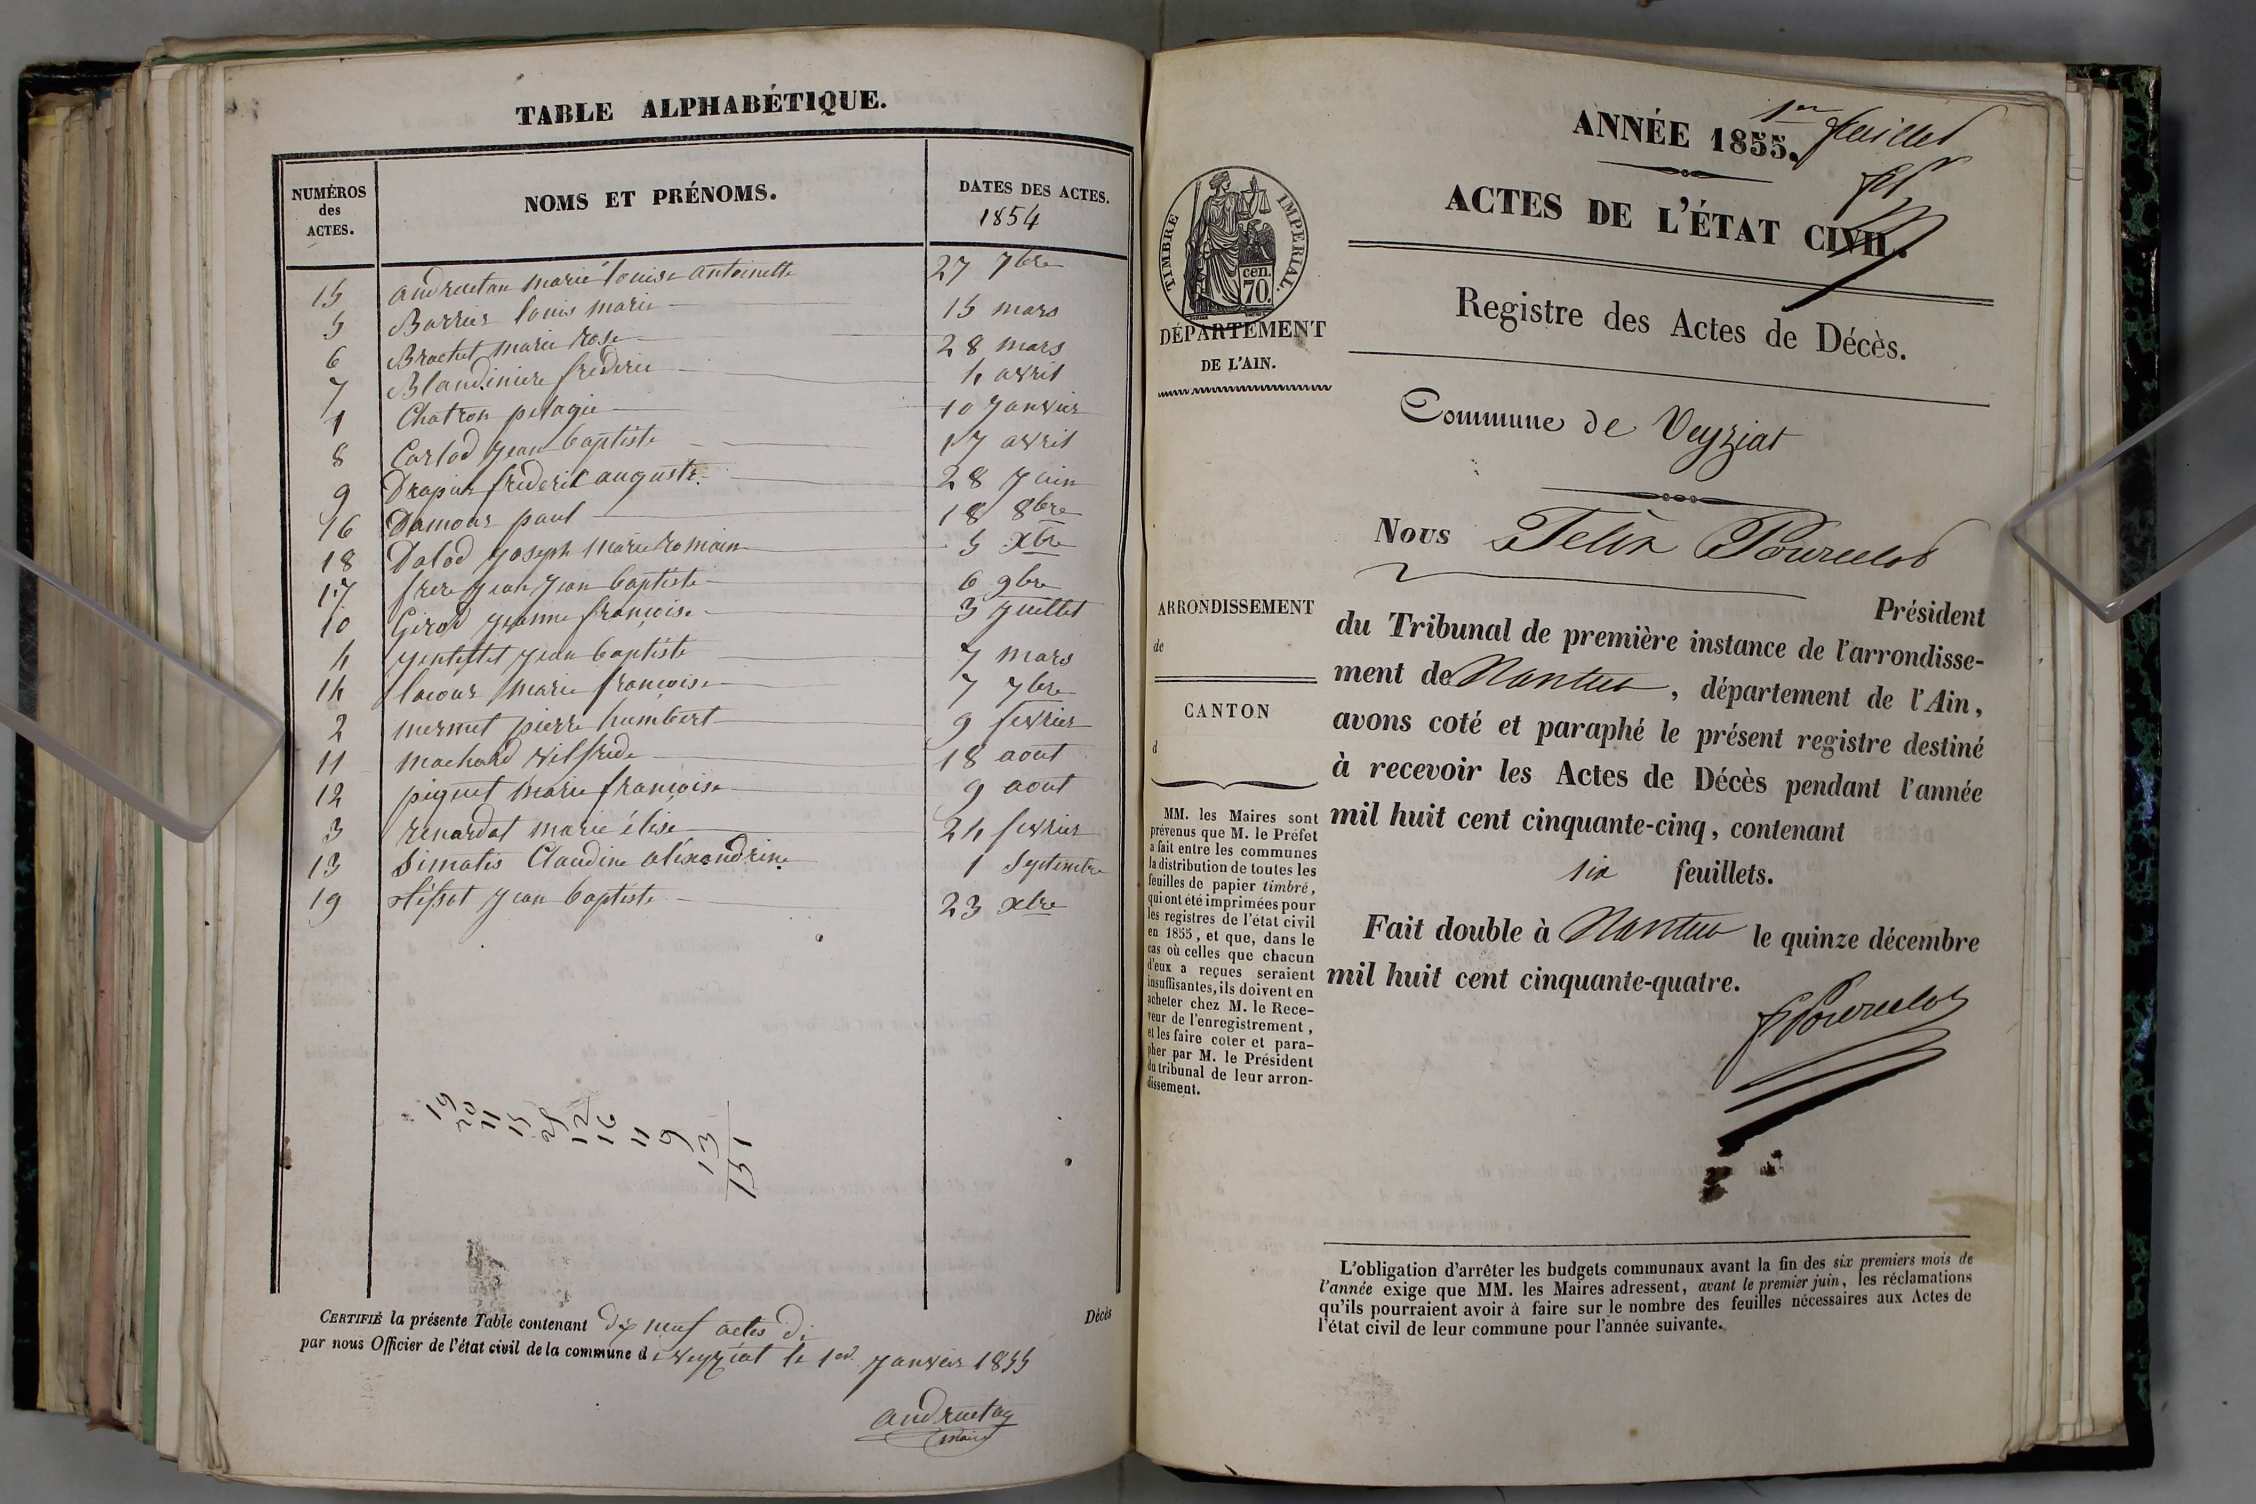 TABLE ALPHABÉTIQUE.
NUMÉROS des ACTES.
NOMS ET PRÉNOMS.
DATES DES ACTES.
1854
15 andruetan marie louise antoinette 27 7bre
5 Barrier louis marie 15 mars
6 Brachet marie rose 28 mars
7 Blandiniere frederic 4 avril
1 Chatron pelagie 10 janvier
8 Carlod jean baptiste 17 avril
9 Drapier frederic auguste 28 juin
16 Damour paul 18 8bre
18 Dalod joseph marie romain 5 xbre
17 frere jean jean baptiste 6 9bre
10 Girod jeanne françoise 3 juillet
4 jentettet jean baptiste 7 mars
14 lacour marie françoise 7 7bre
2 mermet pierre humbert 9 fevrier
11 machard vilfride 18 aout
12 piquet marie françoise 9 aout
3 renardat marie élise 24 fevrier
13 Simatis Claudine aléxandrine 1 Septembre
19 tissot jean baptiste 23 xbre
19
20
11
15
12
16
11
9
13
151
CERTIFIÉ la présente Table contenant dix neuf actes de Décès
par nous Officier de l'état civil de la commune d e veyziat le 1er janvier 1855
andruetan
maire
1er feuillet
ANNÉE 1855.
ACTES DE L'ÉTAT CIVIL.
TIMBRE IMPERIAL.
70 cen.
DÉPARTEMENT
DE L'AIN.
Registre des Actes de Décès.
Commune de Veyziat
Nous Felix Pourcelot
Président
du Tribunal de première instance de l'arrondisse-
ment de Nantua, département de l'Ain,
avons coté et paraphé le présent registre destiné
à recevoir les Actes de Décès pendant l'année
mil huit cent cinquante-cinq, contenant
six feuillets.
Fait double à Nantua le quinze décembre
mil huit cent cinquante-quatre.
F Pourcelot
ARRONDISSEMENT
de
CANTON
d
MM. les Maires sont
prévenus que M. le Préfet
a fait entre les communes
la distribution de toutes les
feuilles de papier timbré,
qui ont été imprimées pour
les registres de l'état civil
en 1855, et que, dans le
cas où celles que chacun
d'eux a reçues seraient
insuffisantes, ils doivent en
acheter chez M. le Rece-
veur de l'enregistrement,
et les faire coter et para-
pher par M. le Président
du tribunal de leur arron-
dissement.
L'obligation d'arrêter les budgets communaux avant la fin des six premiers mois de
l'année exige que MM. les Maires adressent, avant le premier juin, les réclamations
qu'ils pourraient avoir à faire sur le nombre des feuilles nécessaires aux Actes de
l'état civil de leur commune pour l'année suivante.